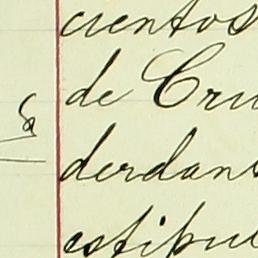 cientos
de Cru
derdans
estipul